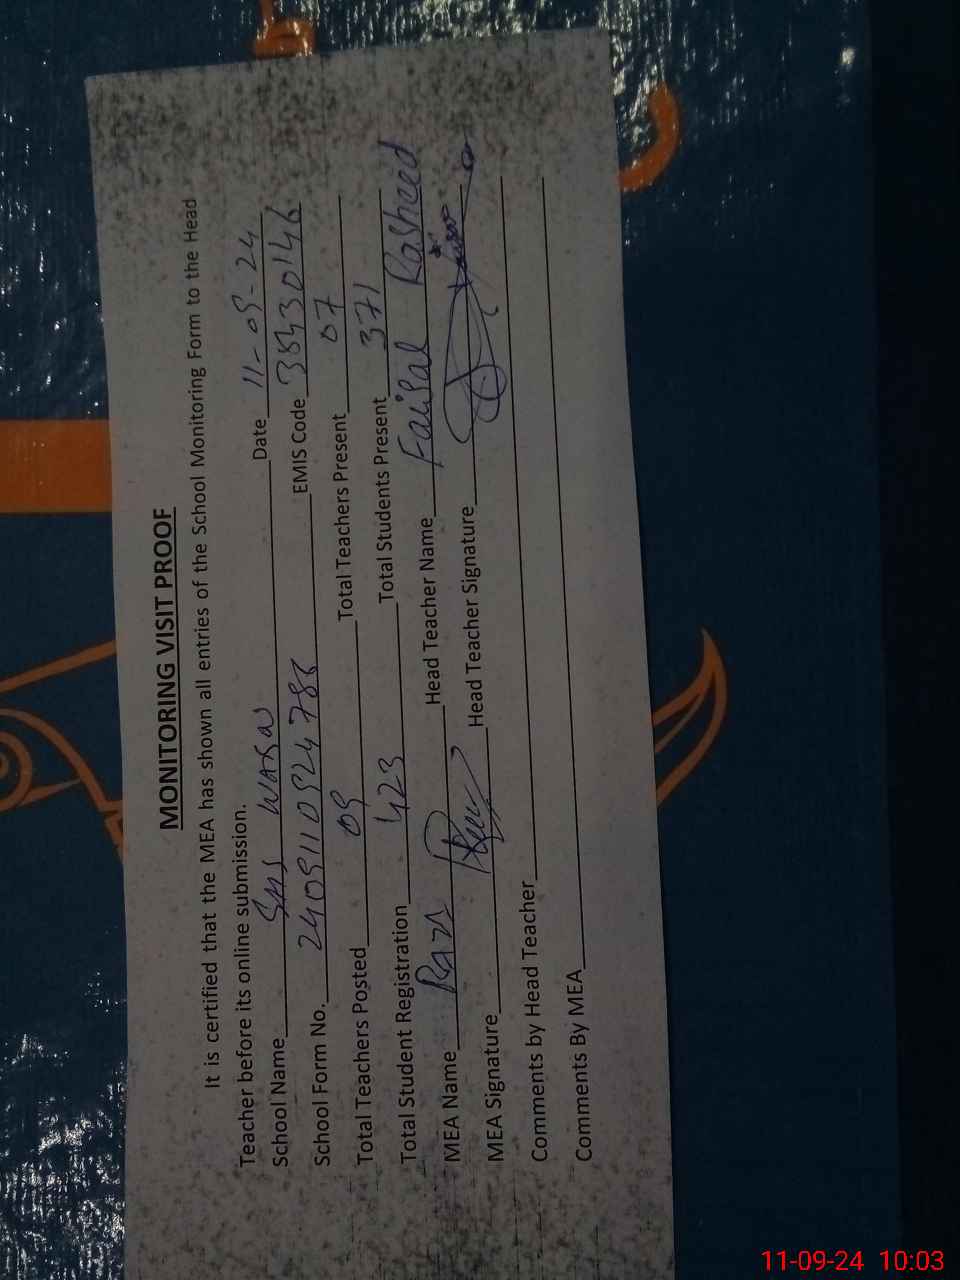 MONITORING VISIT PROOF
It is certified that the MEA has shown all entries of the School Monitoring Form to the Head
Teacher before its online submission.
School Name Date 11-09-24
School Form No. EMIS Code 38430146
Total Teachers Posted 09 Total Teachers Present 07
Total Student Registration 423 Total Students Present 371
MEA Name Head Teacher Name Faisal Rasheed
MEA Signature Head Teacher Signature
Comments by Head Teacher
Comments By MEA
11-09-24 10:03